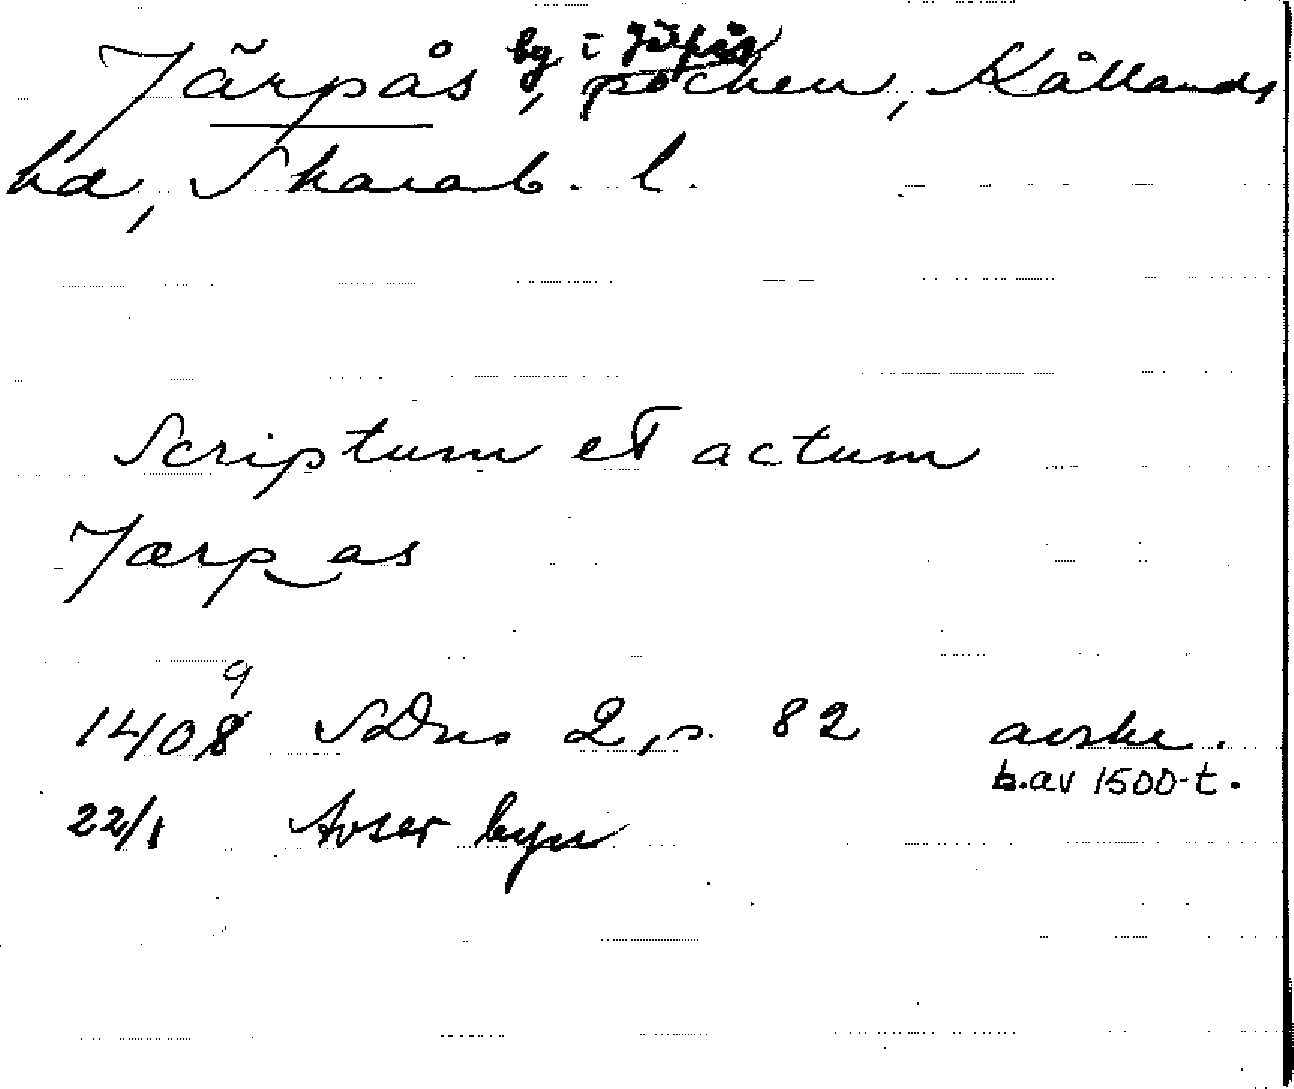 Järpås, by i Järpås socken, Kållands
hd, Skarab. l.
Scriptum et actum
Jærp as
1408 9 SDns 2, s. 82 avskr.
b. av 1500-t.
22/1 Avser byn